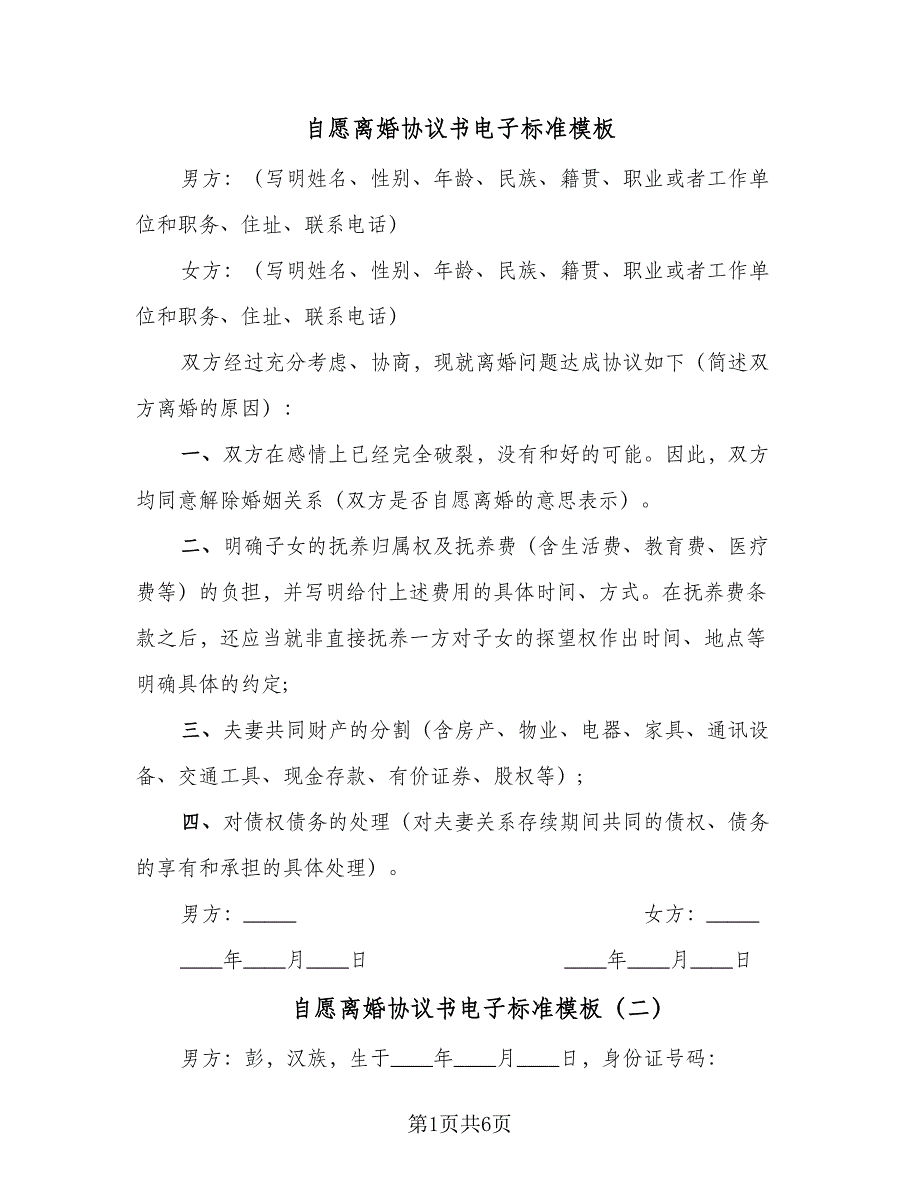 自愿离婚协议书电子标准模板
男方：（写明姓名、性别、年龄、民族、籍贯、职业或者工作单
位和职务、住址、联系电话）
女方：（写明姓名、性别、年龄、民族、籍贯、职业或者工作单
位和职务、住址、联系电话）
双方经过充分考虑、协商，现就离婚问题达成协议如下（简述双
方离婚的原因）：
一、双方在感情上已经完全破裂，没有和好的可能。因此，双方
均同意解除婚姻关系（双方是否自愿离婚的意思表示）。
二、明确子女的抚养归属权及抚养费（含生活费、教育费、医疗
费等）的负担，并写明给付上述费用的具体时间、方式。在抚养费条
款之后，还应当就非直接抚养一方对子女的探望权作出时间、地点等
明确具体的约定;
三、夫妻共同财产的分割（含房产、物业、电器、家具、通讯设
备、交通工具、现金存款、有价证券、股权等）;
四、对债权债务的处理（对夫妻关系存续期间共同的债权、债务
的享有和承担的具体处理）。
男方：_____ 女方：_____
____年____月____日 ____年____月____日
自愿离婚协议书电子标准模板（二）
男方：彭，汉族，生于____年____月____日，身份证号码：
第1页共6页